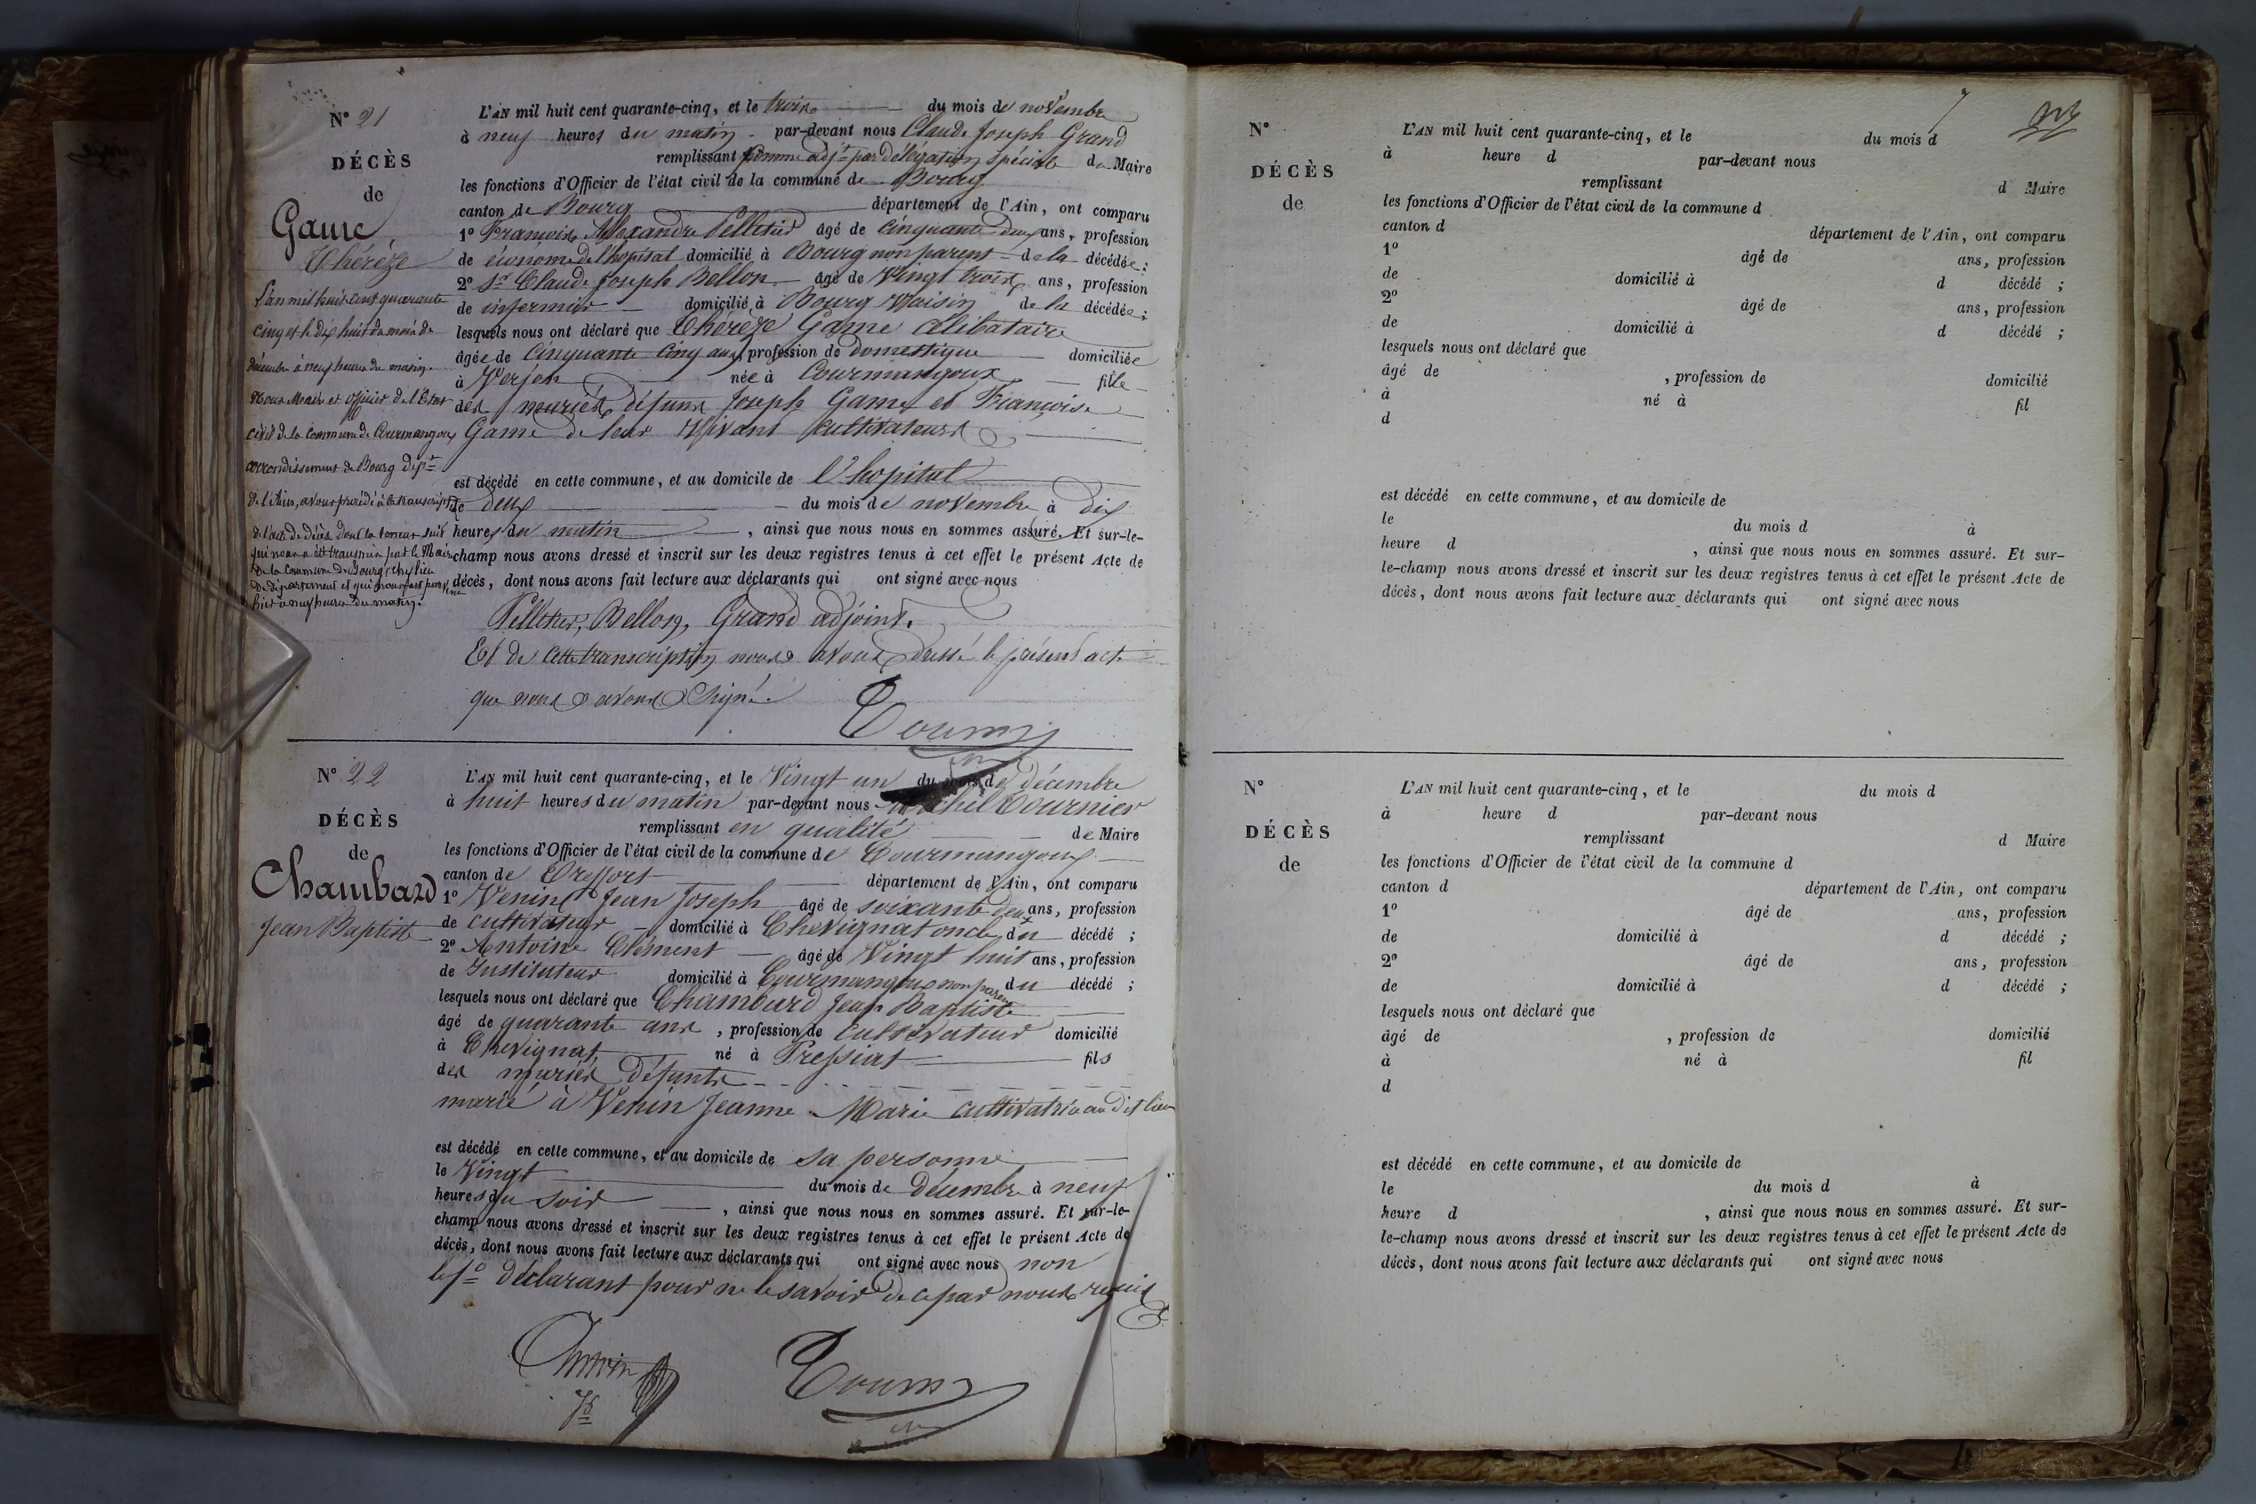 N° 21
DÉCÈS
de
Game
Thérèze
L'an mil huit cent quarante
cinq et le dix huit du mois de
décembre à neuf heures du matin.
Nous Maire et officier de l'Etat
civil de la Commune de Courmangoux
arrondissement de Bourg dépt
de l'Ain, avons procédé à la transcription
de l'acte de décès dont la teneur suit
qui nous a été transmis par le Maire
de la Commune de Bourg chef lieu
de département et qui nous est parvenu
hier à neuf heures du matin.
L'AN mil huit cent quarante-cinq, et le trois du mois de novembre
à neuf heures du matin par-devant nous Claude Joseph Grand
remplissant comme adjt par délégation spéciale du Maire
les fonctions d'Officier de l'état civil de la commune de Bourg
canton de Bourg département de l'Ain, ont comparu
1° François Alexandre Pelletier âgé de cinquante deux ans, profession
de économe de l'hopital domicilié à Bourg non parent de la décédée;
2° Sr Claude Joseph Bellon âgé de Vingt trois ans, profession
de infirmier domicilié à Bourg Voisin de la décédée;
lesquels nous ont déclaré que Thérèze Game célibataire
âgée de cinquante cinq ans, profession de domestique domiciliée
à Verjon née à Courmangoux fille
des mariés défunts Joseph Game et Françoise
Game de leur vivant cultivateurs
est décédé en cette commune, et au domicile de l'hopital
le deux du mois de novembre à dix
heures du matin, ainsi que nous nous en sommes assuré. Et sur-le-
champ nous avons dressé et inscrit sur les deux registres tenus à cet effet le présent Acte de
décès, dont nous avons fait lecture aux déclarants qui ont signé avec nous
Pelletier, Bellon, Grand adjoint.
Et de cette transcription nous avons dressé le présent acte
que nous avons signé.
Tournier
N° 22
DÉCÈS
de
Chambard
Jean Baptiste
L'AN mil huit cent quarante-cinq, et le Vingt un du mois de décembre
à huit heures du matin par-devant nous Michel Tournier
remplissant en qualité de Maire
les fonctions d'Officier de l'état civil de la commune de Courmangoux
canton de Treffort département de l'Ain, ont comparu
1° Venin Jean Joseph âgé de soixante deux ans, profession
de cultivateur domicilié à Chevignat oncle du décédé;
2° Antoine Clément âgé de Vingt huit ans, profession
de Instituteur domicilié à Courmangoux non parent du décédé;
lesquels nous ont déclaré que Chambard Jean Baptiste
âgé de quarante ans, profession de cultivateur domicilié
à Chevignat né à Pressiat fils
des mariés défunts
marié à Venin Jeanne Marie cultivatrice au dit lieu
est décédé en cette commune, et au domicile de sa personne
le Vingt du mois de décembre à neuf
heures du soir, ainsi que nous nous en sommes assuré. Et sur-le-
champ nous avons dressé et inscrit sur les deux registres tenus à cet effet le présent Acte de
décès, dont nous avons fait lecture aux déclarants qui ont signé avec nous non
le 1er déclarant pour ne le savoir de ce par nous requis
Antoine
Tournier
N°
DÉCÈS
de
L'AN mil huit cent quarante-cinq, et le du mois d
à heure d par-devant nous
remplissant d Maire
les fonctions d'Officier de l'état civil de la commune d
canton d département de l'Ain, ont comparu
1° âgé de ans, profession
de domicilié à d décédé ;
2° âgé de ans, profession
de domicilié à d décédé ;
lesquels nous ont déclaré que
âgé de , profession de domicilié
à né à fil
d
est décédé en cette commune, et au domicile de
le du mois d à
heure d , ainsi que nous nous en sommes assuré. Et sur-
le-champ nous avons dressé et inscrit sur les deux registres tenus à cet effet le présent Acte de
décès, dont nous avons fait lecture aux déclarants qui ont signé avec nous
N°
DÉCÈS
de
L'AN mil huit cent quarante-cinq, et le du mois d
à heure d par-devant nous
remplissant d Maire
les fonctions d'Officier de l'état civil de la commune d
canton d département de l'Ain, ont comparu
1° âgé de ans, profession
de domicilié à d décédé ;
2° âgé de ans, profession
de domicilié à d décédé ;
lesquels nous ont déclaré que
âgé de , profession de domicilié
à né à fil
d
est décédé en cette commune, et au domicile de
le du mois d à
heure d , ainsi que nous nous en sommes assuré. Et sur-
le-champ nous avons dressé et inscrit sur les deux registres tenus à cet effet le présent Acte de
décès, dont nous avons fait lecture aux déclarants qui ont signé avec nous